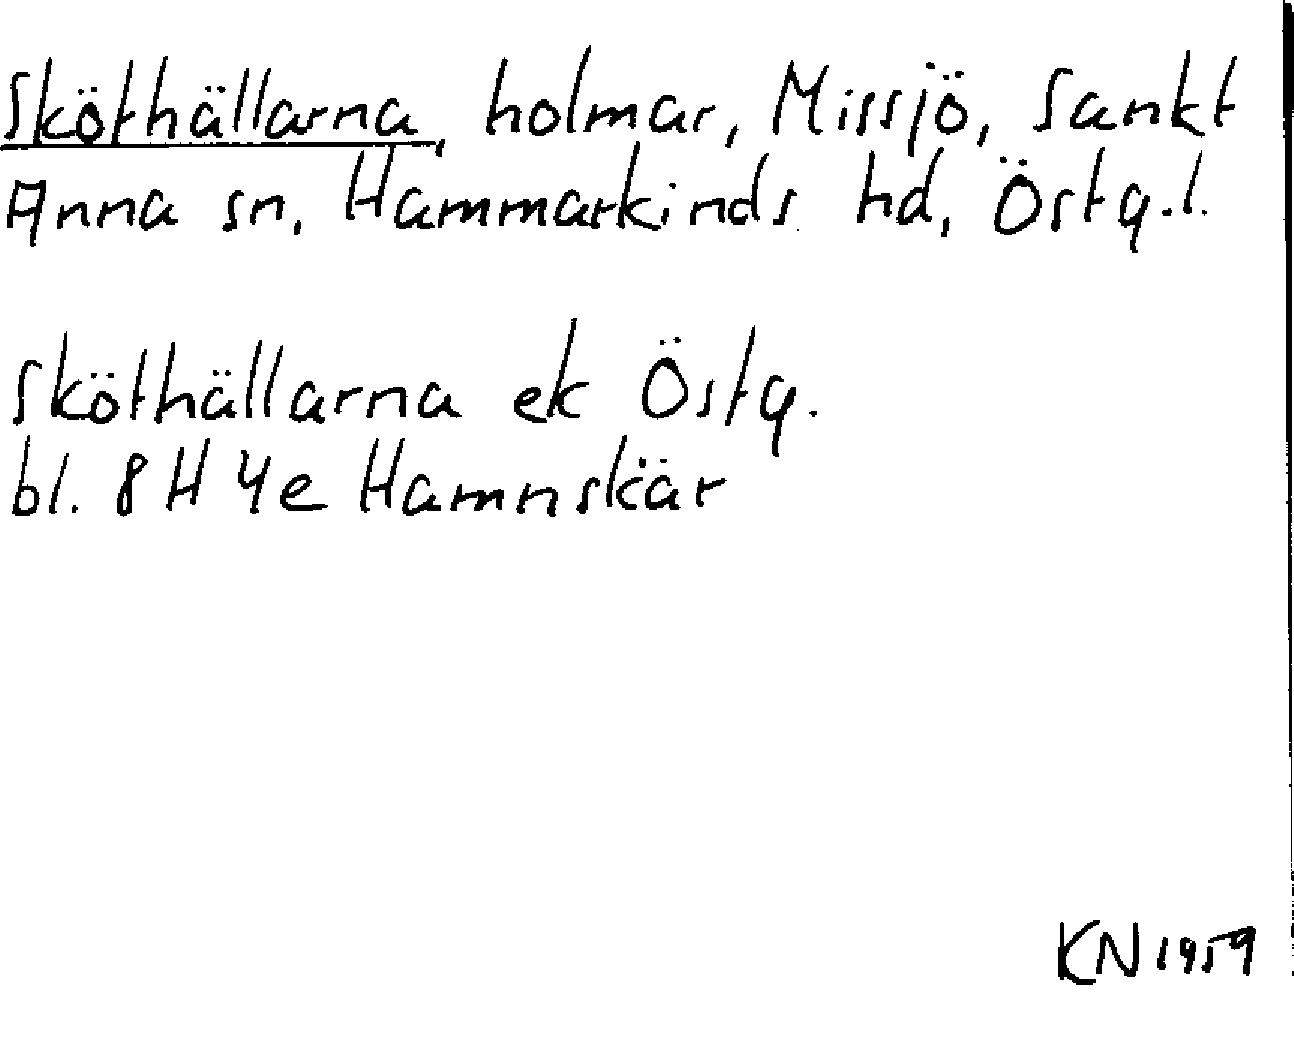 Sköthällarna, holmar, Missjö, Sankt
Anna sn, Hammarkinds hd, Östg.l.
Sköthällarna ek Östg.
bl. 8H 4e Hamnskär
KN 1959